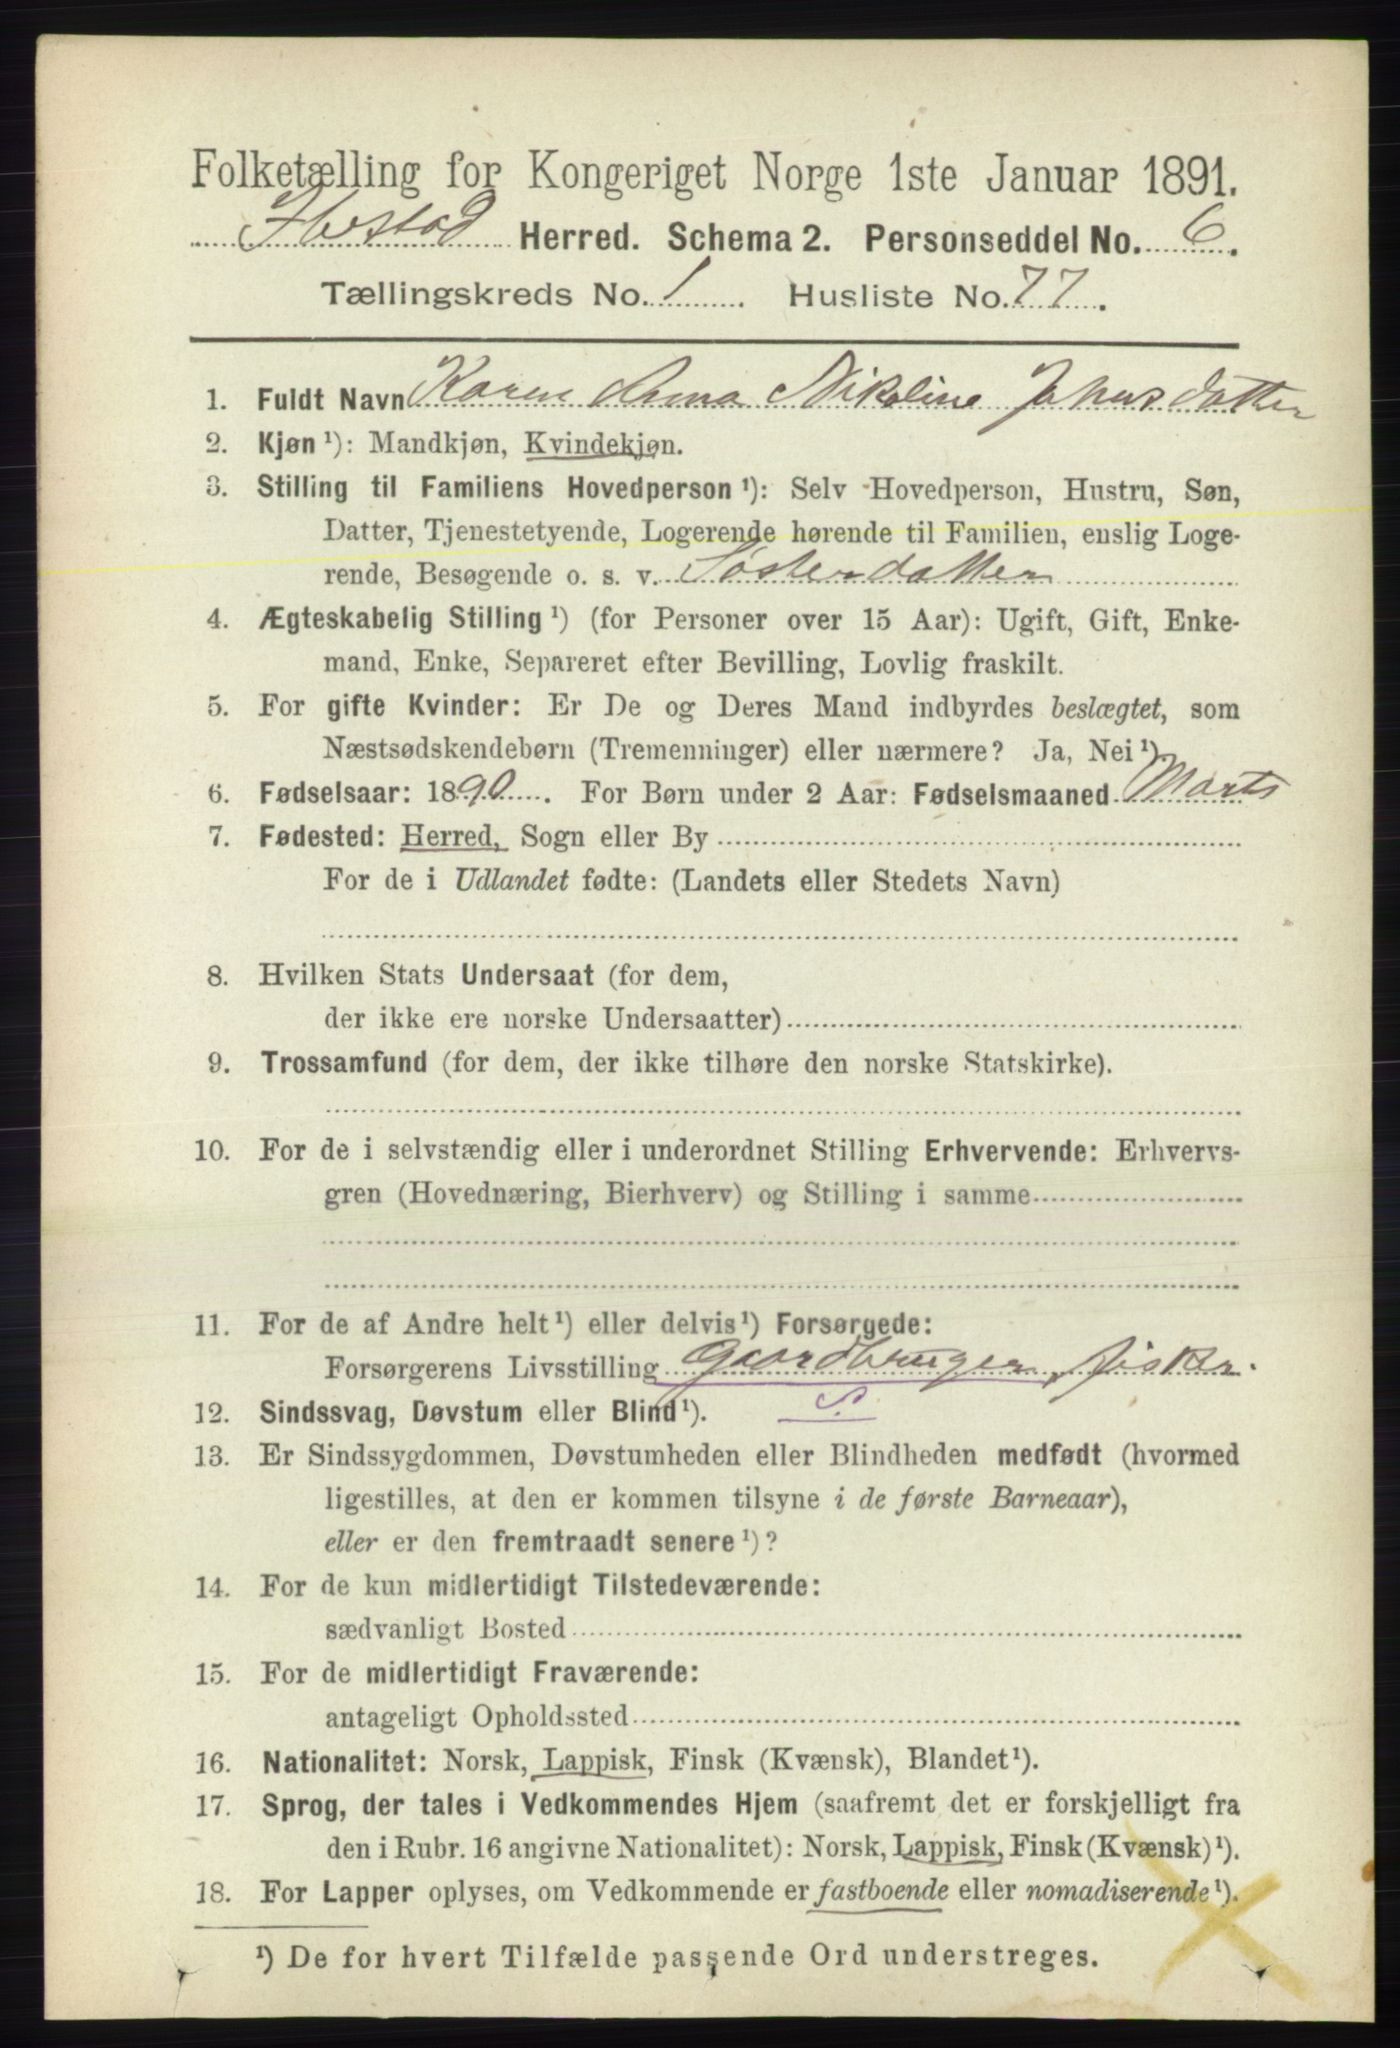 Folketælling for Kongeriget Norge 1ste Januar 1891.
Ibestad Herred. Schema 2. Personseddel No. 6.
Tællingskreds No. 1. Husliste No. 77.
1. Fuldt Navn Karen Anna Nikoline Johnsdatter
2. Kjøn ¹): Mandkjøn, Kvindekjøn.
3. Stilling til Familiens Hovedperson ¹): Selv Hovedperson, Hustru, Søn,
Datter, Tjenestetyende, Logerende hørende til Familien, enslig Loge-
rende, Besøgende o. s. v. Søsterdatter
4. Ægteskabelig Stilling ¹) (for Personer over 15 Aar): Ugift, Gift, Enke-
mand, Enke, Separeret efter Bevilling, Lovlig fraskilt.
5. For gifte Kvinder: Er De og Deres Mand indbyrdes beslægtet, som
Næstsødskendebørn (Tremenninger) eller nærmere? Ja, Nei ¹).
6. Fødselsaar: 1890. For Børn under 2 Aar: Fødselsmaaned Marts
7. Fødested: Herred, Sogn eller By
For de i Udlandet fødte: (Landets eller Stedets Navn)
8. Hvilken Stats Undersaat (for dem,
der ikke ere norske Undersaatter)
9. Trossamfund (for dem, der ikke tilhøre den norske Statskirke).
10. For de i selvstændig eller i underordnet Stilling Erhvervende: Erhvervs-
gren (Hovednæring, Bierhverv) og Stilling i samme
11. For de af Andre helt ¹) eller delvis ¹) Forsørgede:
Forsørgerens Livsstilling Gaardbruger, fisker.
12. Sindssvag, Døvstum eller Blind ¹). S.
13. Er Sindssygdommen, Døvstumheden eller Blindheden medfødt (hvormed
ligestilles, at den er kommen tilsyne i de første Barneaar),
eller er den fremtraadt senere ¹)?
14. For de kun midlertidigt Tilstedeværende:
sædvanligt Bosted
15. For de midlertidigt Fraværende:
antageligt Opholdssted
16. Nationalitet: Norsk, Lappisk, Finsk (Kvænsk), Blandet ¹).
17. Sprog, der tales i Vedkommendes Hjem (saafremt det er forskjelligt fra
den i Rubr. 16 angivne Nationalitet): Norsk, Lappisk, Finsk (Kvænsk) ¹).
18. For Lapper oplyses, om Vedkommende er fastboende eller nomadiserende ¹).
¹) De for hvert Tilfælde passende Ord understreges.